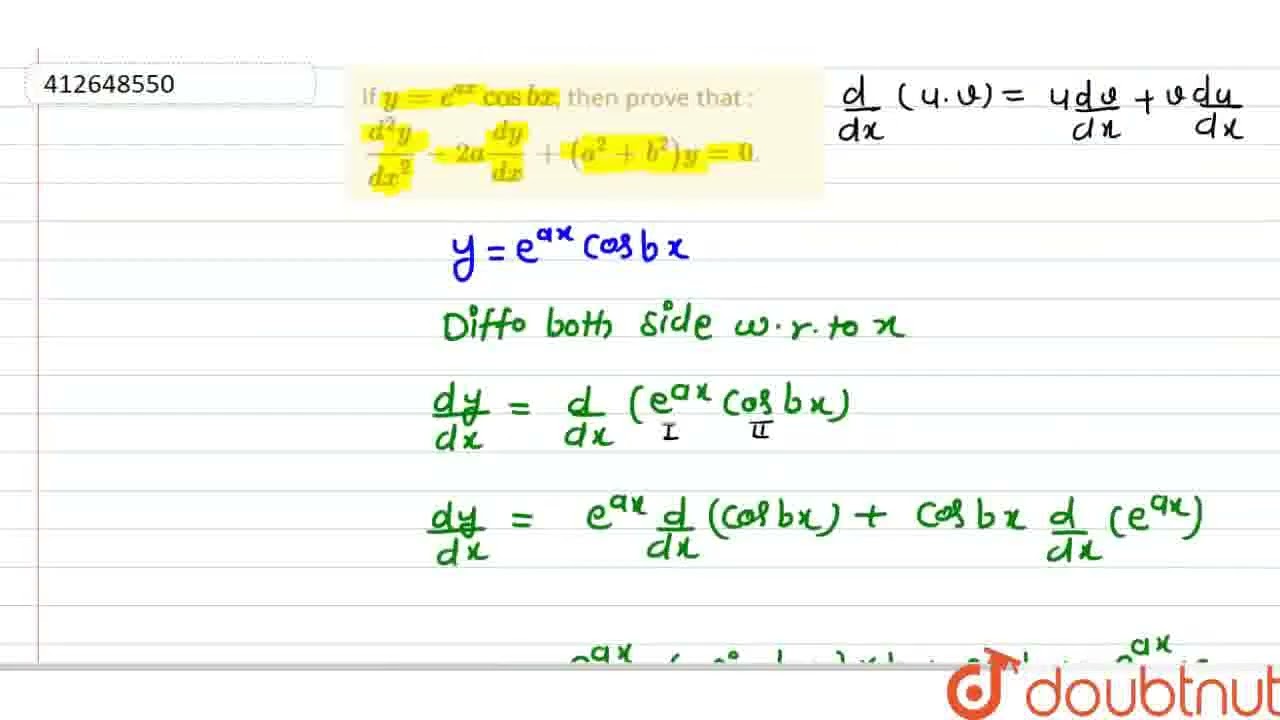 412648550
If y = e^{ax} cos bx, then prove that :
d²y/dx² − 2a dy/dx + (a² + b²)y = 0.
d/dx (u.v) = u dv/dx + v du/dx
y = e^{ax} cos bx
Diffo both side w.r.to x
dy/dx = d/dx (e^{ax} cos bx)
I II
dy/dx = e^{ax} d/dx (cos bx) + cos bx d/dx (e^{ax})
doubtnut